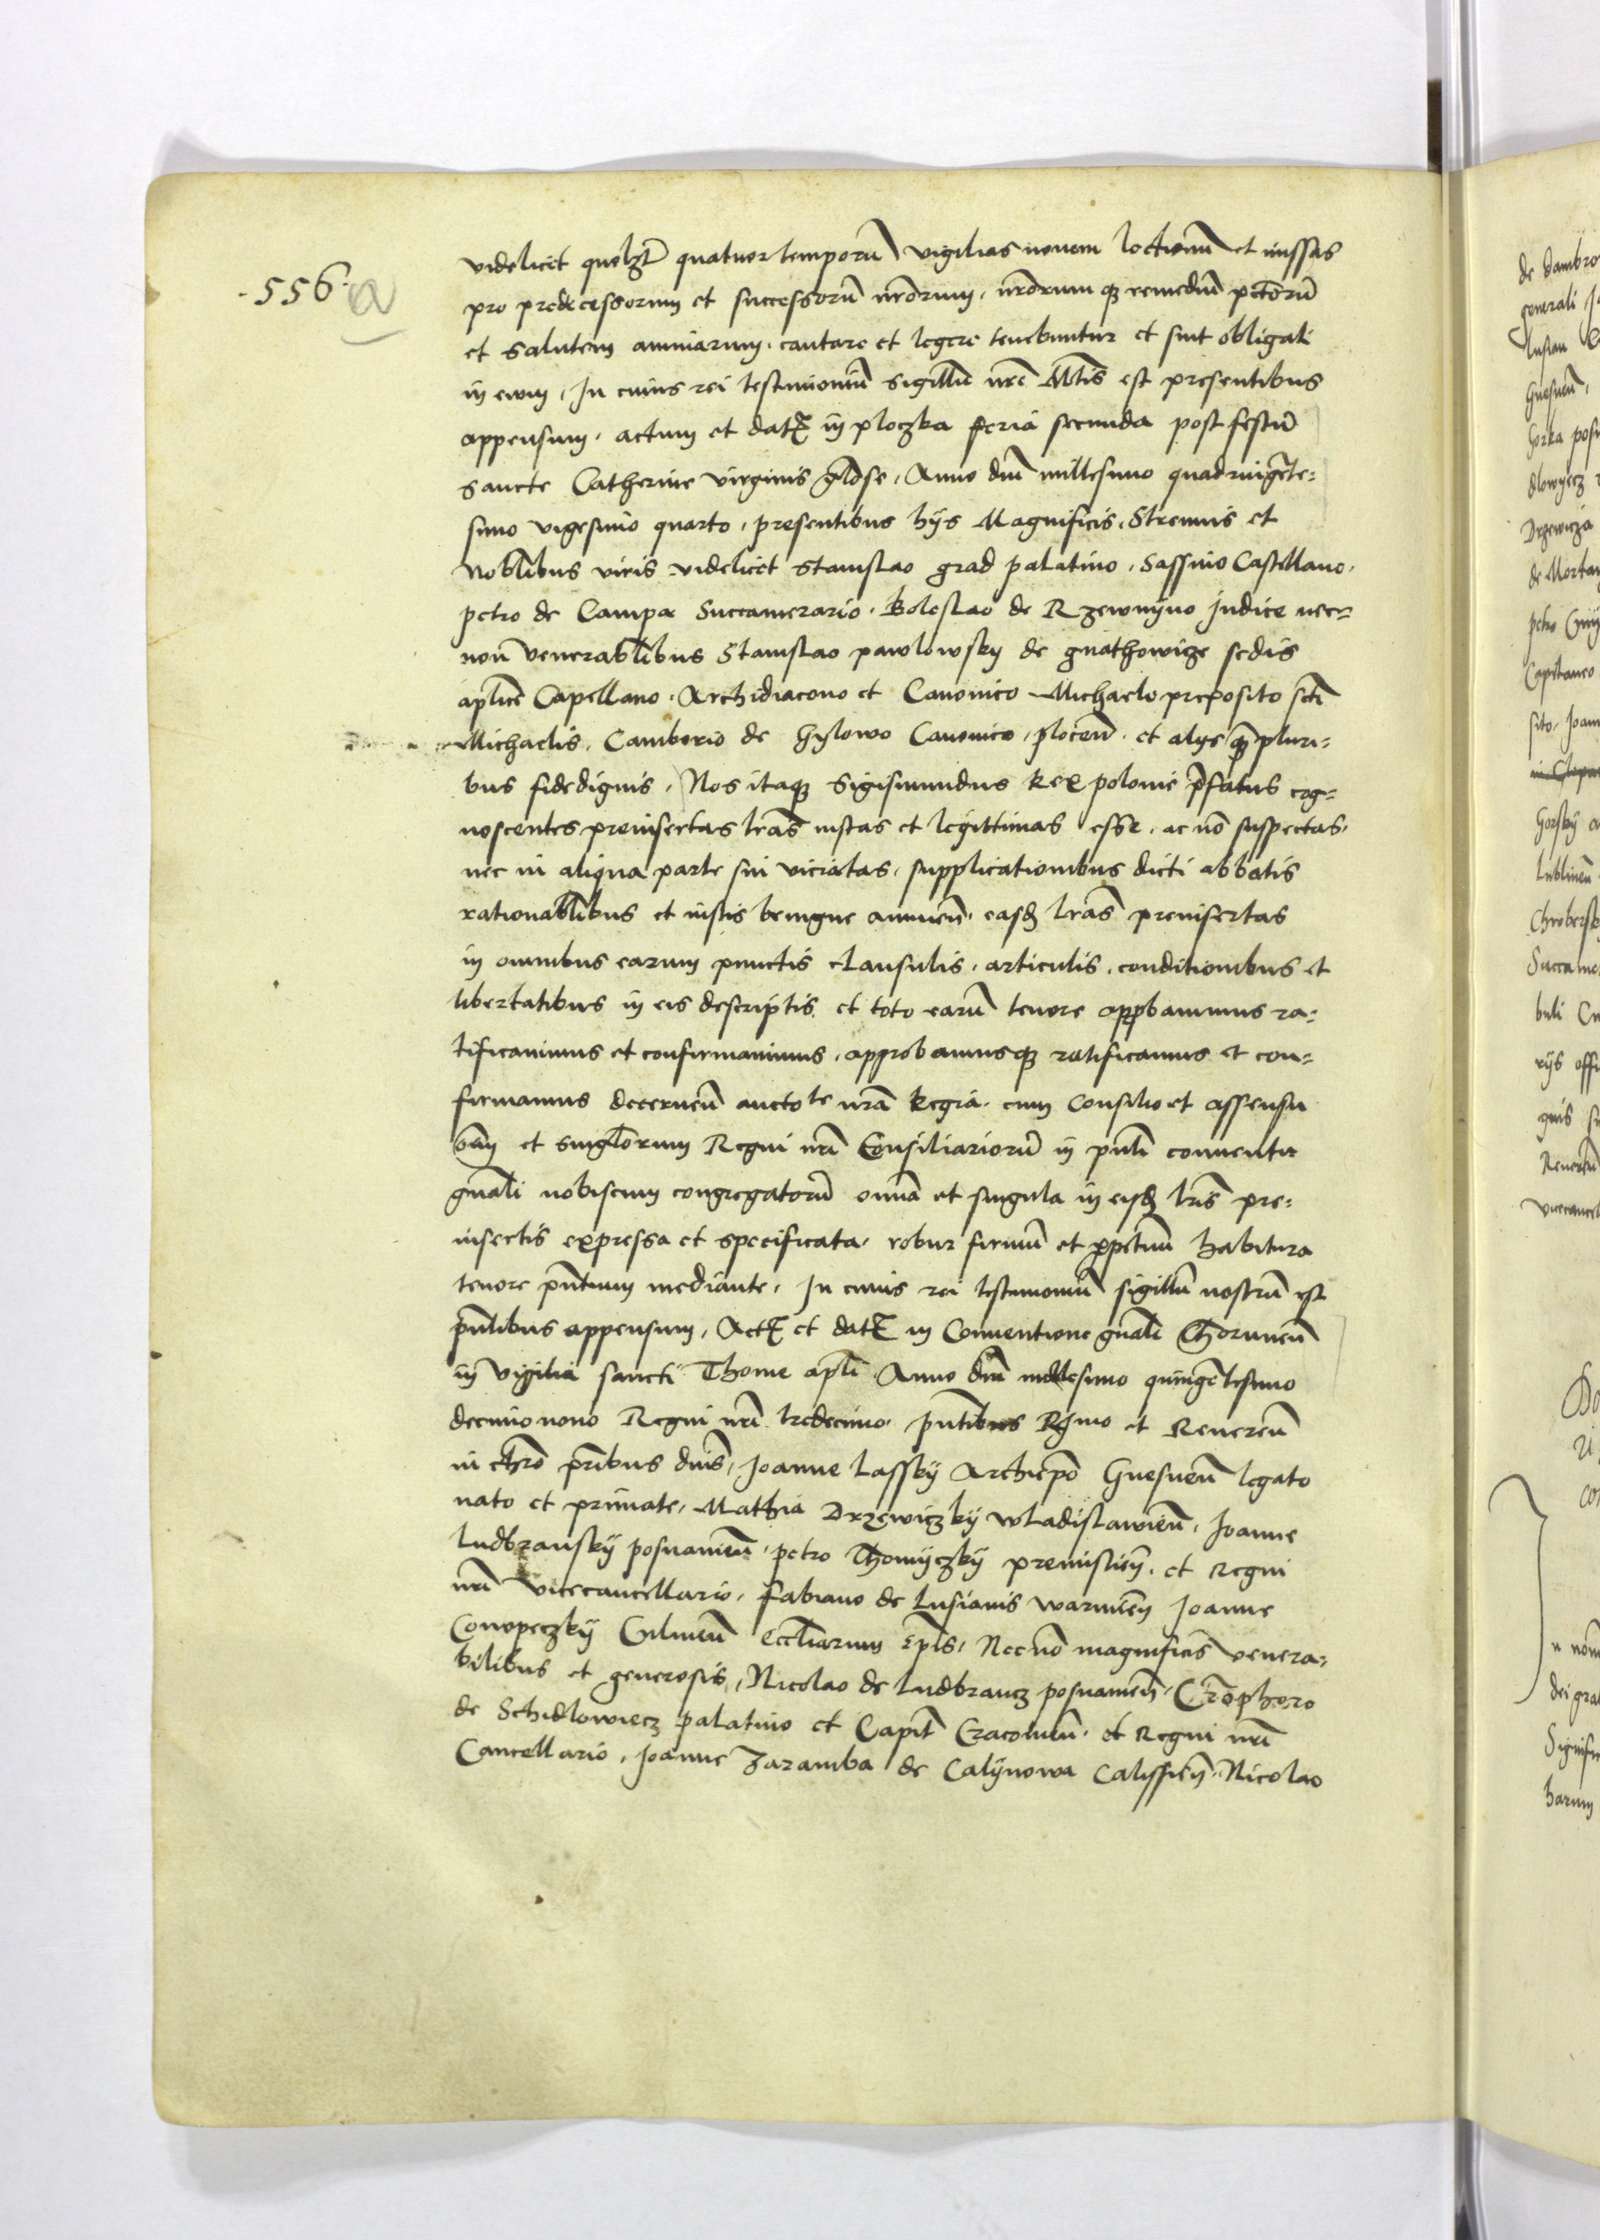 ·556· a
videlicet quolzt quatuor temporũ vigilias novem lectionũ et missas
pro predecessorum et successorũ nrorum, nrorumq remediũ pctorũ
et salutem animarum, cantare et legere tenebuntur et sint obligati
in evum, In cuius rei testimoniũ sigillũ nre Mtis est presentibus
appensum, actum et dat in ploczka feria secunda post festũ
sancte Catherine virginis glose, Anno dni millesimo quadringẽte=
simo vigesimo quarto, presentibus hijs Magnificis, Strenuis et
Noblibus viris videlicet Stanislao grad palatino, Sassino Castellano,
petro de Campa Succamerario, Boleslao de Rzewnyno Judice nec=
non venerablibus Stanislao pawlowsky de gnathowicze sedis
aplice Capellano, Archidiacono et Canonico Michaele preposito scti
Michaelis, Camborio de Gylowo Canonico, plocen, et alijs qm pluri=
bus fidedignis, Nos itaq Sigismundus Rex polonie pfatus cog=
noscentes preinsertas lras iustas et legittimas esse, ac nõ suspectas,
nec in aliqua parte sui viciatas, supplicationibus dicti abbatis
rationablibus et iustis benigne annuen, easd lras preinsertas
in omnibus earum punctis clausulis, articulis, conditionibus et
libertatibus in eis descriptis et toto earũ tenore appbavimus ra=
tificavimus et confirmavimus, approbamusq ratificamus et con=
firmamus decernen aucto te nra Regia, cum Consilio et assensu
oim et singlorum Regni nri Consiliariorũ in pnti conventu
gnali nobiscum congregatorũ omnia et singula in eisd lris pre=
insertis expressa et specificata, robur firmũ et ppetuũ habitura
tenore pntium mediante, In cuius rei testimoniũ sigillũ nostrũ est
pntibus appensum, Act et dat in Conventione gnali Thorunen
in vigilia sancti Thome apli Anno dni millesimo quingẽtesimo
decimo nono Regni nri tredecimo, pntibus Rmo et Reveren
in chro pribus dnis, Joanne Lassky Archiepo Gnesnen legato
nato et primate, Mathia Drzewiczky wladislawien, Joanne
Ludbransky posnanien, petro Thomyczky premislien, et Regni
nri vicecancellario, Fabiano de Lusianis warmien Joanne
Conopeczky Culmen eccliarum epis, Necnõ magnificis venera=
bilibus et generosis, Nicolao de Ludbrancz posnanien, Cristophoro
de Schidlowiecz palatino et Capit Cracovien, et Regni nri
Cancellario, Joanne Zaramba de Calynowa Calissien, Nicolao